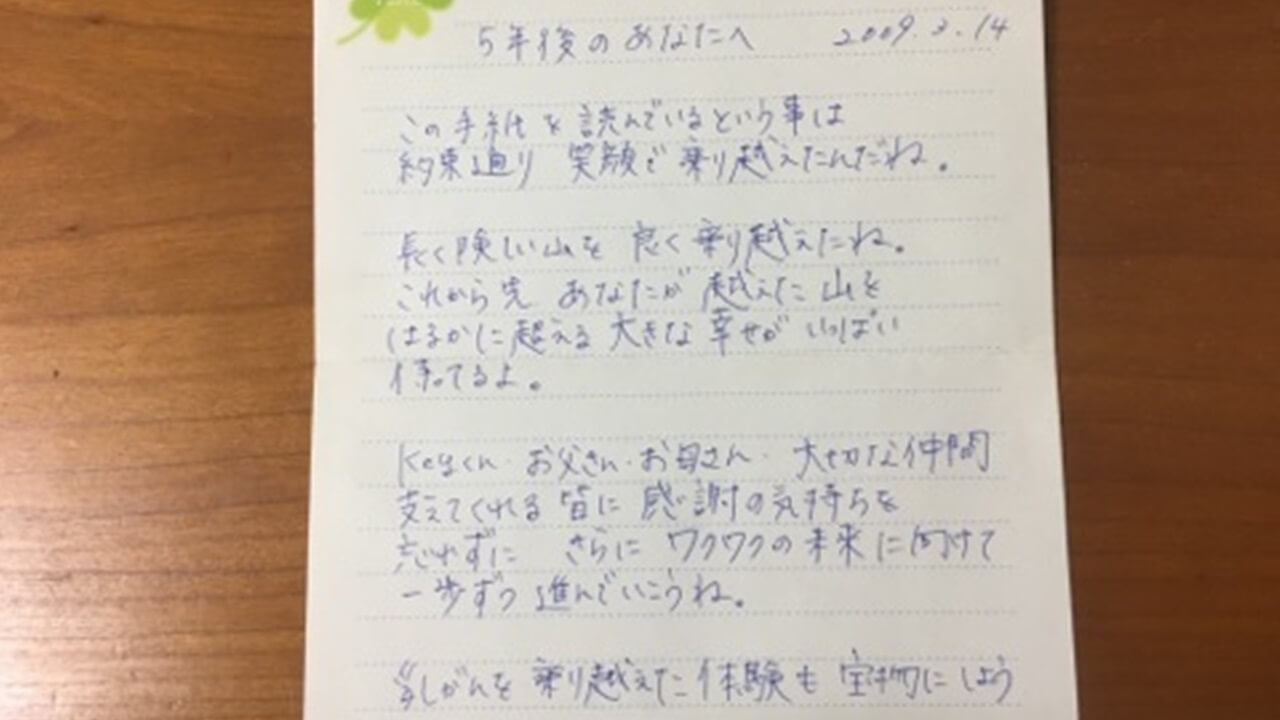 5年後のあなたへ 2009.3.14
この手紙を読んでいるという事は
約束通り 笑顔で乗り越えたんだね。
長く険しい山を 良く乗り越えたね。
これから先 あなたが 越えた山を
はるかに超える 大きな幸せが いっぱい
待ってるよ。
Keyくん・お父さん・お母さん・大切な仲間
支えてくれる皆に 感謝の気持ちを
忘れずに さらに ワクワクの未来に向けて
一歩ずつ 進んでいこうね。
乳がんを 乗り越えた 体験も 宝物にしよう